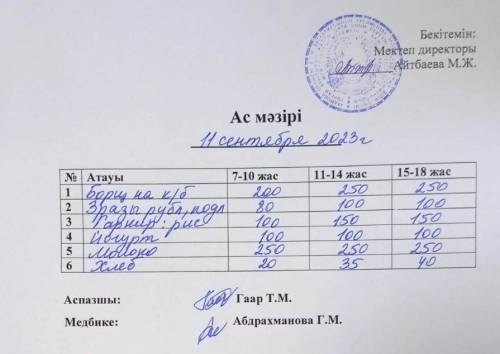 Бекітемін:
Мектеп директоры
Айтбаева М.Ж.
Ас мәзірі
11 сентября 2023г
№ Атауы 7-10 жас 11-14 жас 15-18 жас
1 Борщ на к/б 200 250 250
2 Зразы рубл, подл 80 100 100
3 Гарнир: рис 100 150 150
4 Йогурт 100 100 100
5 Молоко 250 250 250
6 Хлеб 20 35 40
Аспазшы: Гаар Т.М.
Медбике: Абдрахманова Г.М.